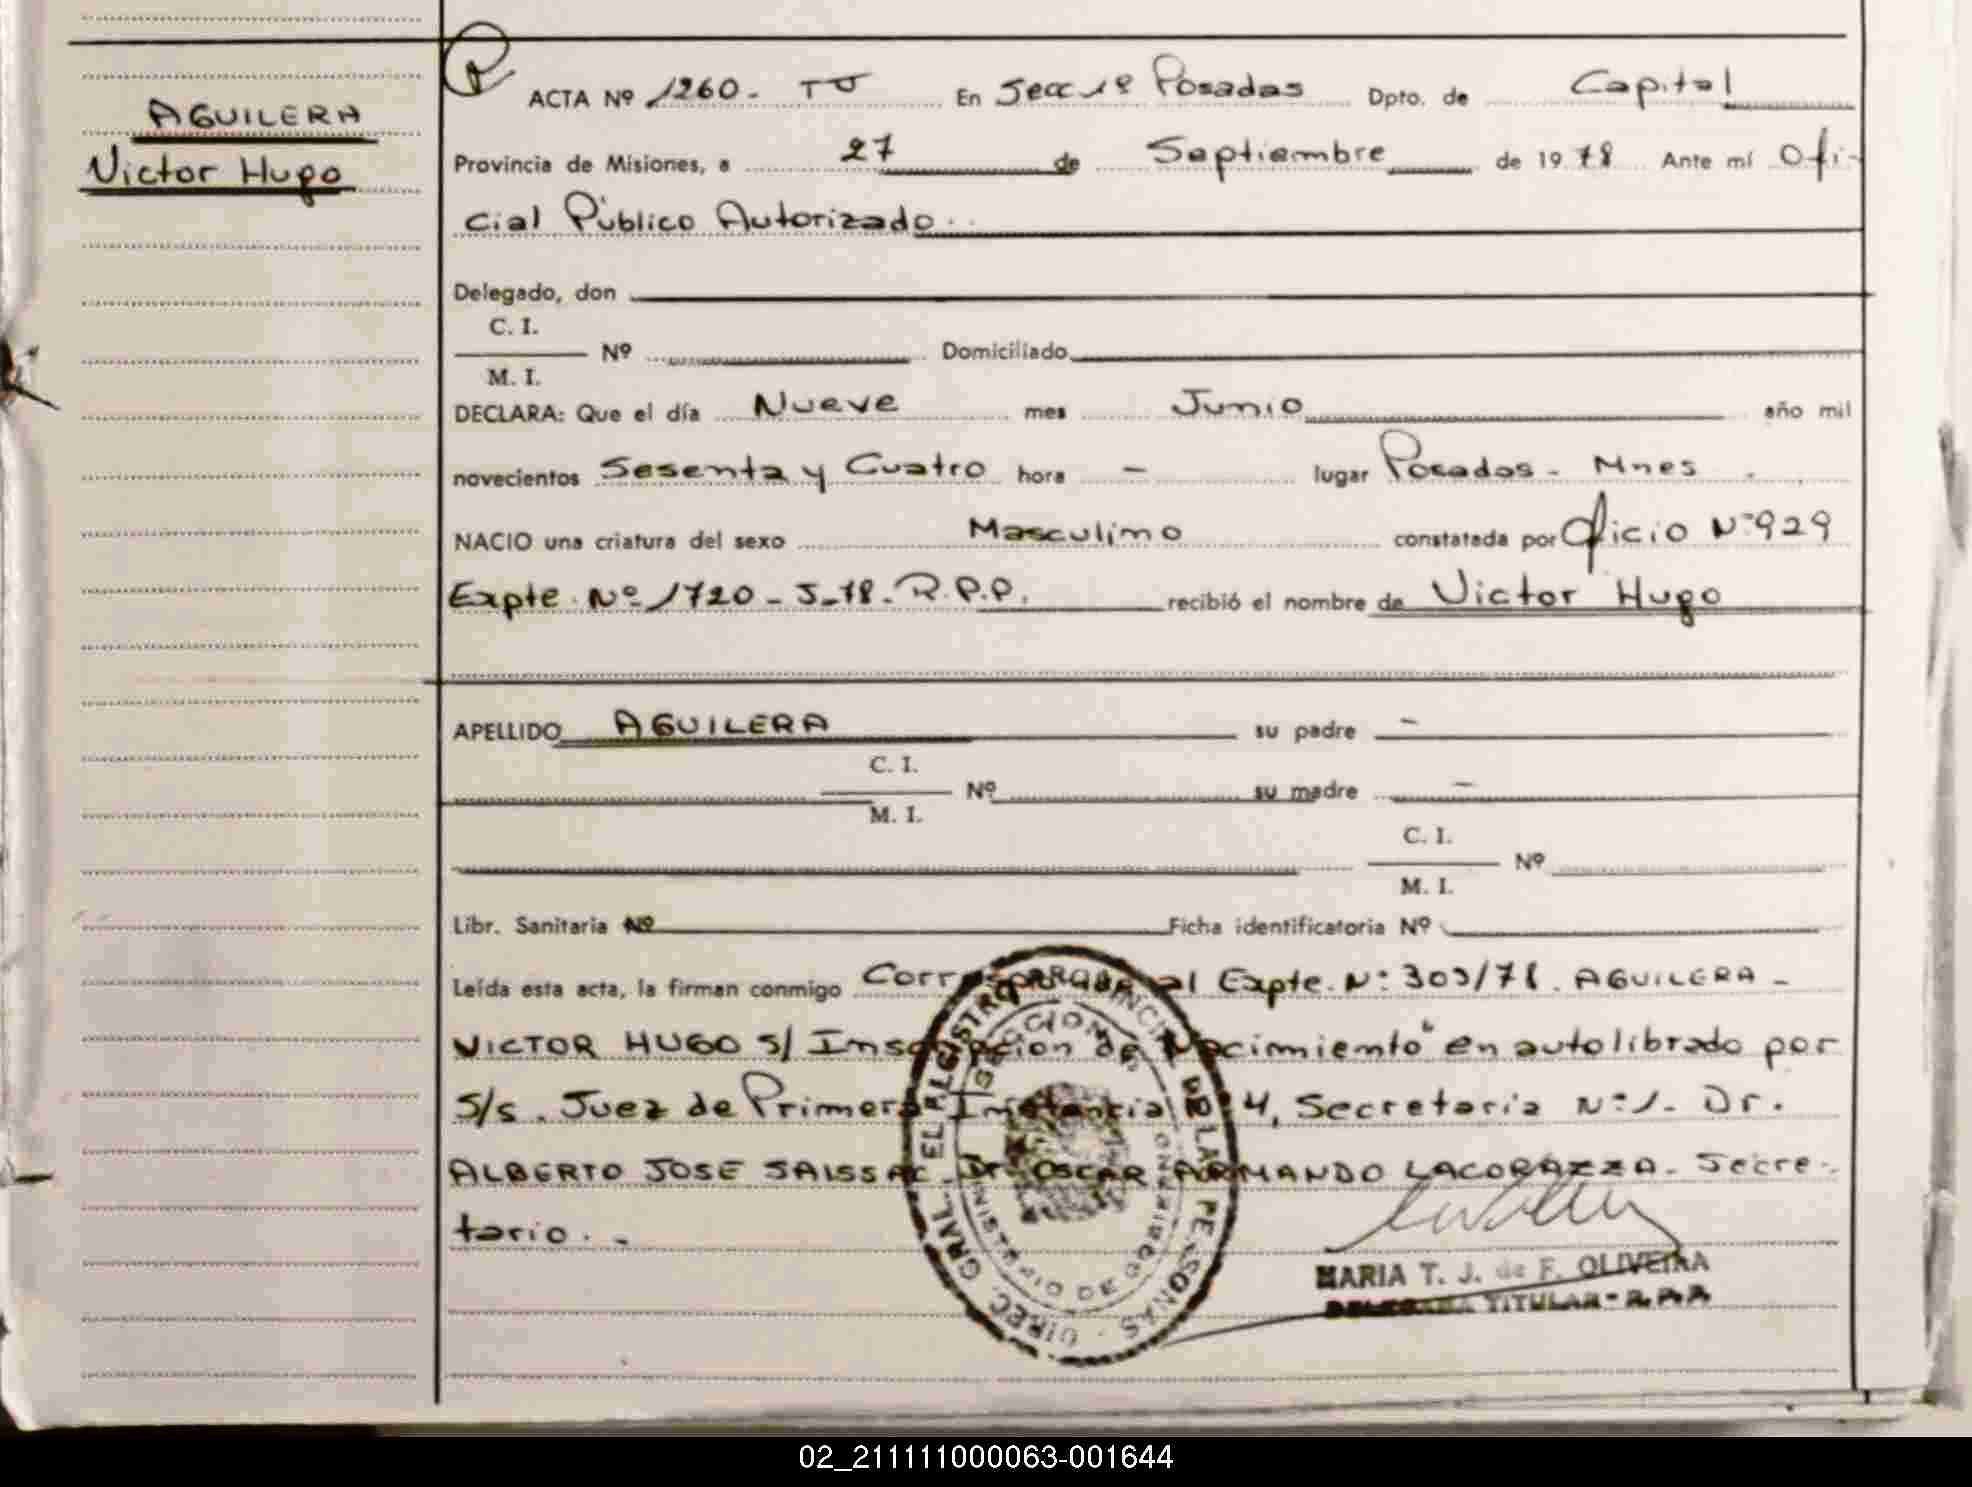 AGUILERA
Victor Hugo
ACTA Nº 1260. TO En Secc 1º Posadas Dpto. de Capital
Provincia de Misiones, a 27 de Septiembre de 1978 Ante mí Ofi-
cial Público Autorizado
Delegado, don
C. I.
Nº Domiciliado
M. I.
DECLARA: Que el día Nueve mes Junio año mil
novecientos Sesenta y Cuatro hora - lugar Posadas - Mnes.
NACIO una criatura del sexo Masculino constatada por Oficio Nº 929
Expte. Nº 1720 - J-78. R.P.P. recibió el nombre de Victor Hugo
APELLIDO AGUILERA su padre -
C. I.
Nº su madre -
M. I.
C. I.
Nº
M. I.
Libr. Sanitaria Nº Ficha identificatoria Nº
Leída esta acta, la firman conmigo al Expte. Nº 303/78. AGUILERA -
VICTOR HUGO S/ Inscripcion de Nacimiento" en auto librado por
S/s. Juez de Primera Instancia 4, Secretaria Nº 1. Dr.
ALBERTO JOSE SAISSAC. Dr OSCAR ARMANDO LACORAZZA. Secre-
tario. -
DIREC. GRAL. EL REGISTRO PROVINCIAL DE LAS PERSONAS
MARIA T. J. de F. OLIVEIRA
DELEGADA TITULAR - R.P.P.
02_211111000063-001644